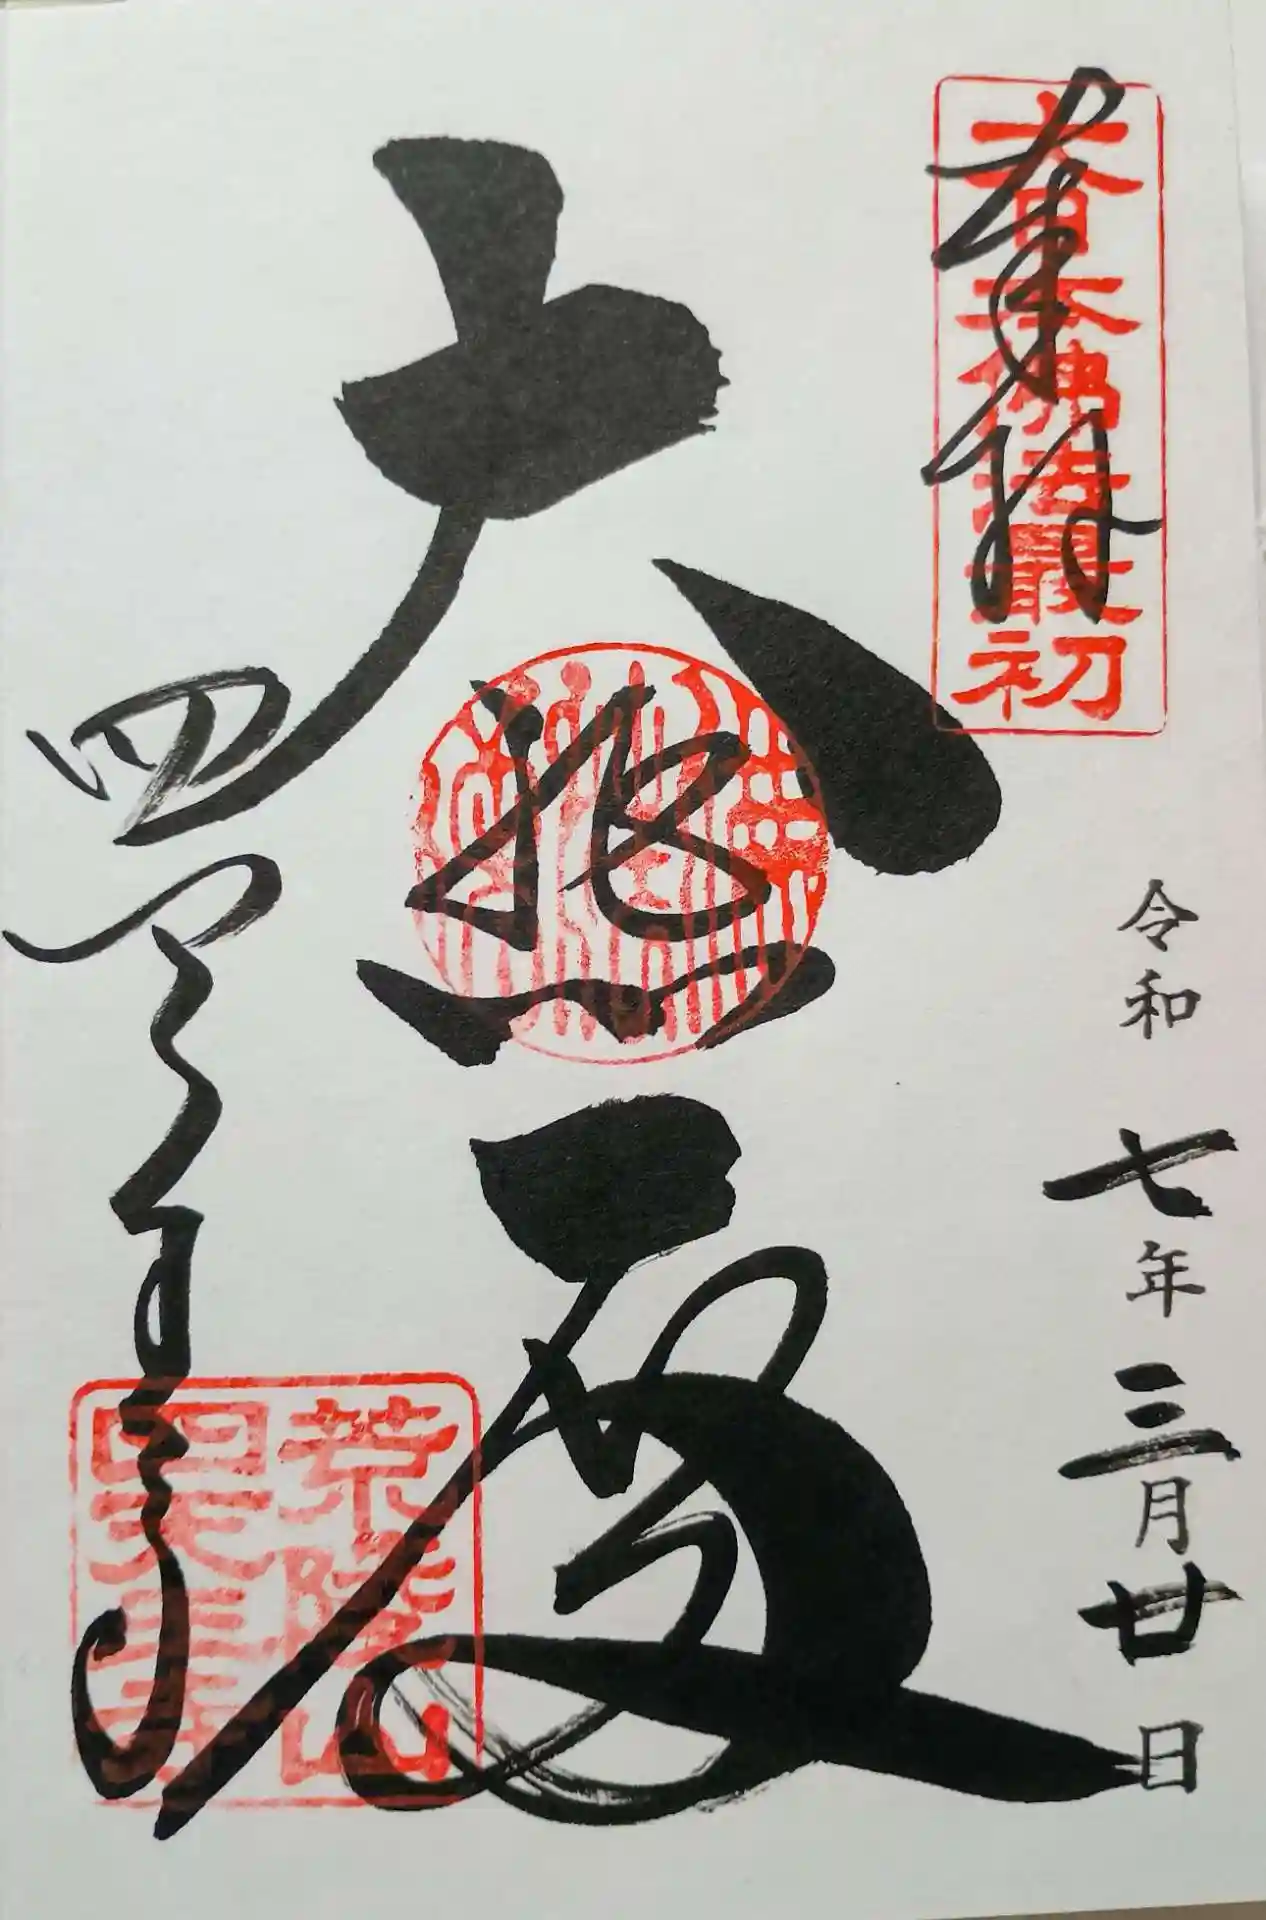 奉拝
大日本佛法最初
令和 七年三月廿日
大悲殿
四天王寺
荒陵山
四天王寺